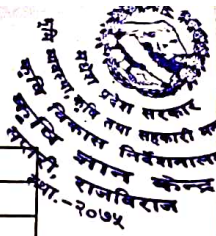 मधेश प्रदेश सरकार
कृषि तथा सहकारी
कृषि विकास निर्देशनालय
कृषि ज्ञान केन्द्र
सप्तरी, राजविराज
स्था.-२०७५